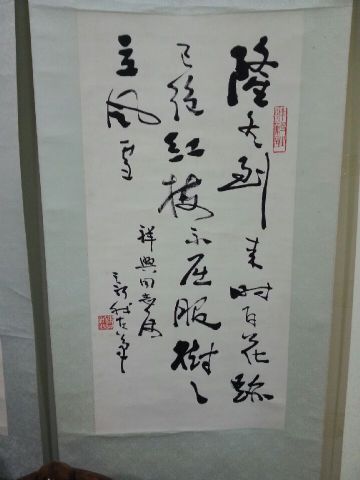 隆冬到来时百花跡
已绝红梅不屈服樹々
立风雪
祥興同志属